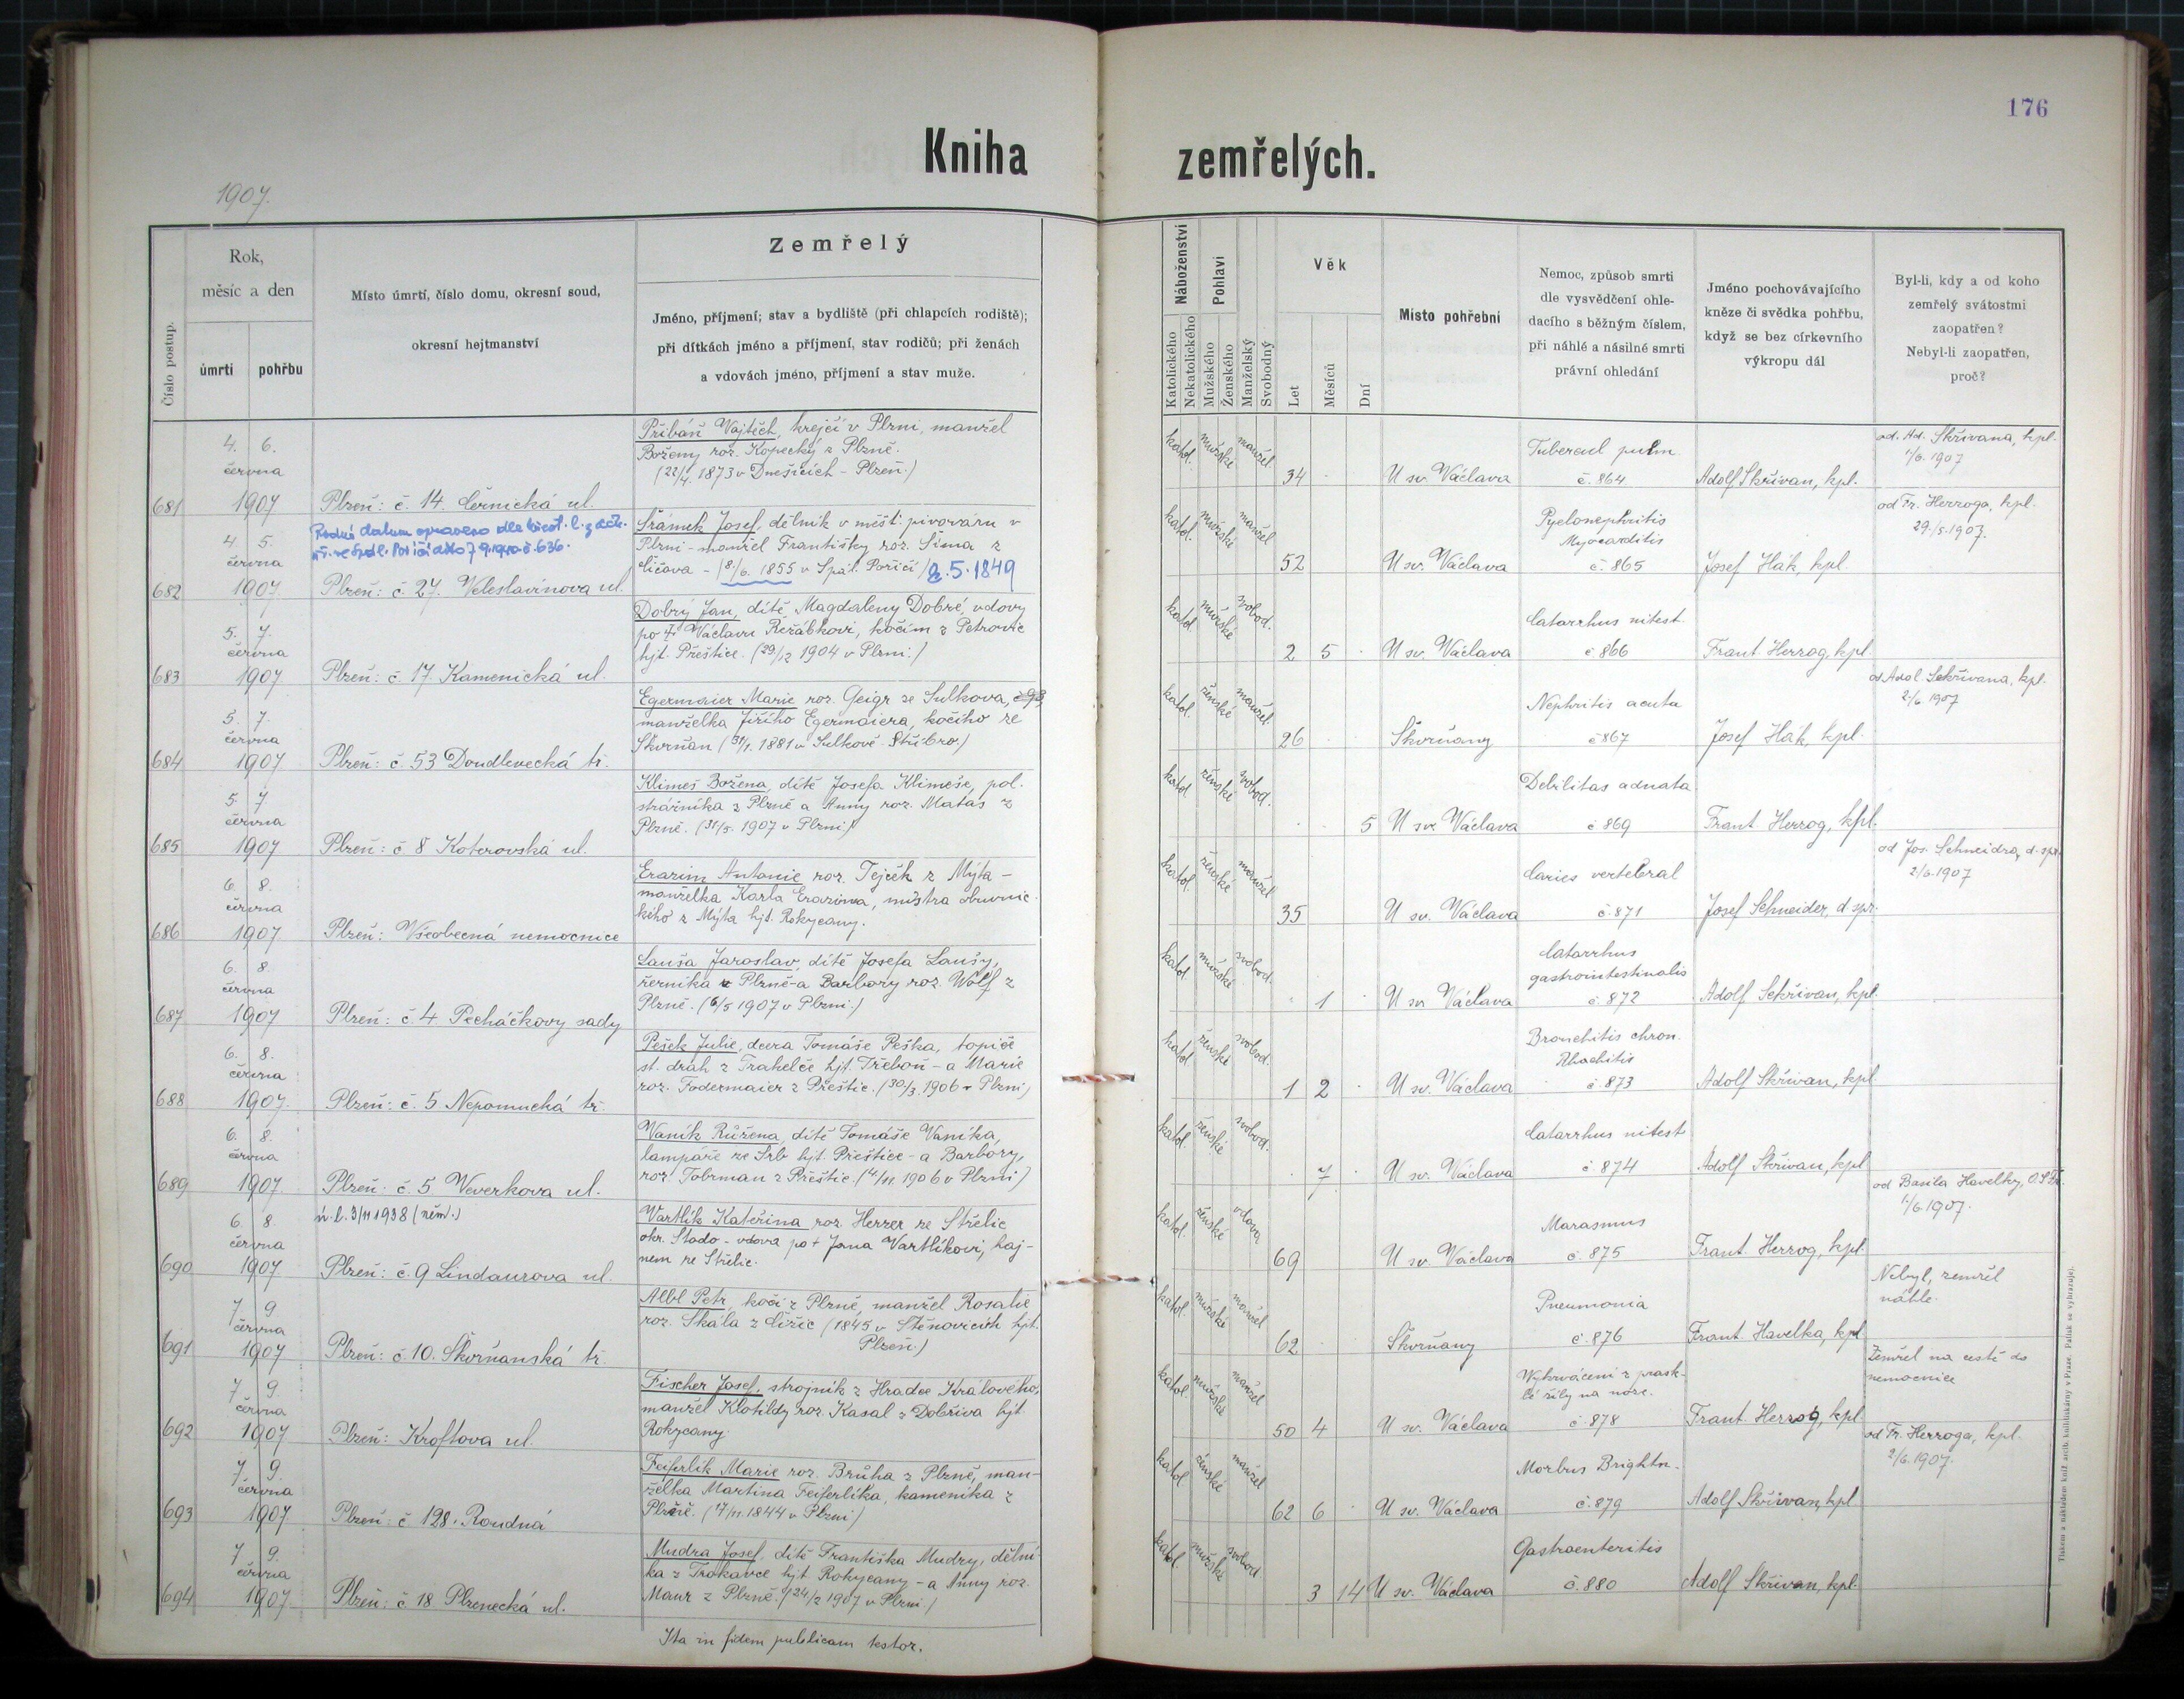 176
Kniha zemřelých.
1907.
Číslo postup.
Rok,
měsíc a den
úmrtí
pohřbu
Místo úmrtí, číslo domu, okresní soud,
okresní hejtmanství
Zemřelý
Jméno, příjmení; stav a bydliště (při chlapcích rodiště);
při dítkách jméno a příjmení, stav rodičů; při ženách
a vdovách jméno, příjmení a stav muže.
Náboženství
Katolického
Nekatolického
Pohlaví
Mužského
Ženského
Manželský
Svobodný
Věk
Let
Měsíců
Dní
Místo pohřební
Nemoc, způsob smrti
dle vysvědčení ohle-
dacího s běžným číslem,
při náhlé a násilné smrti
právní ohledání
Jméno pochovávajícího
kněze či svědka pohřbu,
když se bez církevního
výkropu dál
Byl-li, kdy a od koho
zemřelý svátostmi
zaopatřen?
Nebyl-li zaopatřen,
proč?
681
4. 6.
června
1907
Plzeň: č. 14. Černická ul.
Přibáň Vojtěch, krejčí v Plzni, manžel
Boženy roz. Kopecký z Plzně.
(22/4. 1873 v Dnešicích - Plzeň.)
katol. mužské manžel
34
U sv. Václava
Tubercul pulm.
č. 864
Adolf Skřivan, kpl.
od. Ad. Skřivana, kpl.
1/6. 1907
682
4 5.
června
1907
Rodné datum opraveno dle
č. 636.
Plzeň: č. 27. Veleslavínova ul.
Šrámek Josef, dělník v měšť. pivováru v
Plzni - manžel Františky roz. Šíma z
Čičova - (8/6. 1855 v Spál. Poříčí) 2.5.1849
katol. mužské manžel
52
U sv. Václava
Pyelonephritis
Myocarditis
č. 865
Josef Hák, kpl.
od Fr. Herzoga, kpl.
29./5. 1907.
683
5. 7.
června
1907
Plzeň: č. 17. Kamenická ul.
Dobrý Jan, dítě Magdaleny Dobré, vdovy
po † Václavu Řeřábkovi, kočím z Petrovic
hjt. Přeštice. (29/12 1904 v Plzni.)
katol. mužské svobod.
2 5
U sv. Václava
Catarrhus intest.
č 866
Frant. Herzog, kpl.
684
5. 7.
června
1907
Plzeň: č. 53 Doudlevecká tř.
Egermaier Marie roz. Geigr ze Sulkova, č 93
manželka Jiřího Egermaiera, kočího ze
Skvrňan (31/1. 1881 v Sulkově - Stříbro.)
katol. ženské manžel.
26
Skvrňany
Nephritis acuta
č 867
Josef Hák, kpl.
od Adol. Sekřivana, kpl.
2./6. 1907
685
5. 7
června
1907
Plzeň: č 8 Koterovská ul.
Klimeš Božena, dítě Josefa Klimeše, pol.
strážníka z Plzně a Anny roz. Matas z
Plzně. (31/5. 1907 v Plzni.)
katol. ženské svobod.
5
U sv. Václava
Debilitas adnata
č. 869
Frant. Herzog, kpl.
686
6. 8.
června
1907
Plzeň: Všeobecná nemocnice
Erazim Antonie roz. Tejček z Mýta -
manželka Karla Erazima, mistra obuvnic-
kého z Mýta hjt. Rokycany.
katol. ženské manžel
35
U sv. Václava
Caries vertebral
č. 871
Josef Schneider, d spr.
od Jos. Schneidra, d. spr.
2/6. 1907
687
6. 8.
června
1907
Plzeň: č. 4 Pecháčkovy sady
Lauša Jaroslav, dítě Josefa Laušy,
řezníka z Plzně - a Barbory roz. Wolf z
Plzně. (6/5 1907 v Plzni.)
katol. mužské svobod.
1
U sv. Václava
Catarrhus
gastrointestinalis
č. 872
Adolf Sekřivan, kpl.
688
6. 8.
června
1907.
Plzeň: č. 5 Nepomucká tř.
Pešek Julie, dcera Tomáše Peška, topiče
st. drah z Frahelče hjt. Třeboň - a Marie
roz. Fodermaier z Přeštic. (30/3. 1906 v Plzni.)
katol. ženské svobod.
1 2
U sv. Václava
Bronchitis chron.
Rhachitis
č. 873
Adolf Skřivan, kpl
689
6. 8.
června
1907.
Plzeň: č. 5 Weverkova ul.
Vaník Růžena, dítě Tomáše Vaníka,
lampáře ze Srb hjt. Přeštice - a Barbory,
roz. Tobrman z Přeštic. (4/11. 1906 v Plzni)
katol. ženské svobod.
7
U sv. Václava
Catarrhus intest
č. 874
Adolf Skřivan, kpl
690
6. 8.
června
1907
ú. l. 3/11 1938 (něm.)
Plzeň: č. 9 Lindaurova ul.
Vartlík Kateřina roz. Herzer ze Střelic
okr. Stado - vdova po † Janu Vartlíkovi, haj-
ném ze Střelic.
katol. ženské vdova
69
U sv. Václava
Marasmus
č. 875
Frant. Herzog, kpl.
od Basila Havelky, O. S. Fr.
1./6 1907.
691
7. 9
června
1907
Plzeň: č. 10. Skvrňanská tř.
Albl Petr, kočí z Plzně, manžel Rosalie
roz. Skála z Čižic (1845 v Štěnovicích hjt.
Plzeň.)
katol. mužské manžel
62
Skvrňany
Pneumonia
č. 876
Frant. Havelka, kpl
Nebyl, zemřel
náhle.
692
7 9.
června
1907
Plzeň: Kroftova ul.
Fischer Josef, strojník z Hradce Králového,
manžel Klotildy roz. Kasal z Dobříva hjt.
Rokycany.
katol. mužské manžel
50 4
U sv. Václava
Vykrvácení z prask-
lé žíly na noze.
č. 878
Frant. Herzog, kpl.
Zemřel na cestě do
nemocnice
693
7 9.
června
1907
Plzeň: č 128. Roudná
Feiferlík Marie roz. Brůha z Plzně, man-
želka Martina Feiferlíka, kameníka z
Plzně. (7/11. 1844 v Plzni.)
katol. ženské manžel
62 6
U sv. Václava
Morbus Brightn.
č. 879
Adolf Skřivan, kpl
od Fr. Herzoga, kpl.
2/6. 1907.
694
7 9.
června
1907
Plzeň: č 18 Plzenecká ul.
Mudra Josef, dítě Františka Mudry, dělní-
ka z Trokavce hjt. Rokycany - a Anny roz.
Maur z Plzně. (24/2 1907 v Plzni.)
katol. mužské svobod.
3 14
U sv. Václava
Gastroenteritis
č. 880
Adolf Skřivan, kpl.
Ita in fidem publicam testor.